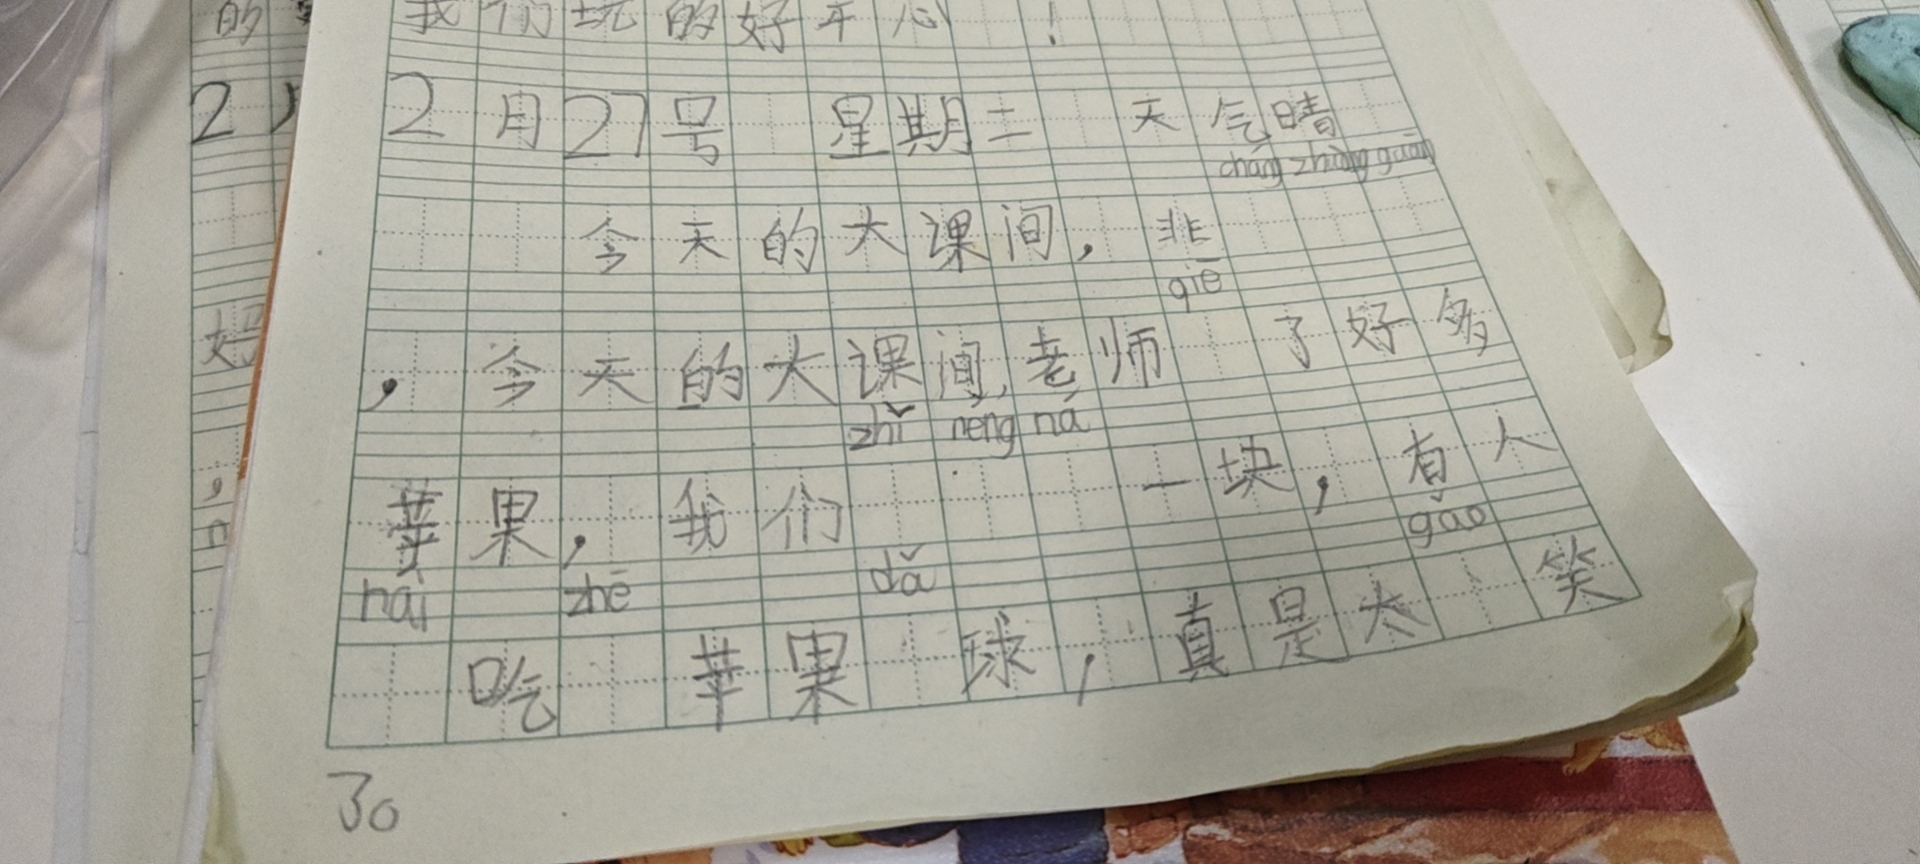 我们玩的好开心!
2月27号 星期二 天气晴
cháng zhuàng guān
今天的大课间,韭
qiē
,今天的大课间,老师 了好多
zhǐ néng ná
苹果,我们 一块,有人
hái zhē dǎ gǎo
吃 苹果 球,真是太 笑
30
的
2月
好
,
n